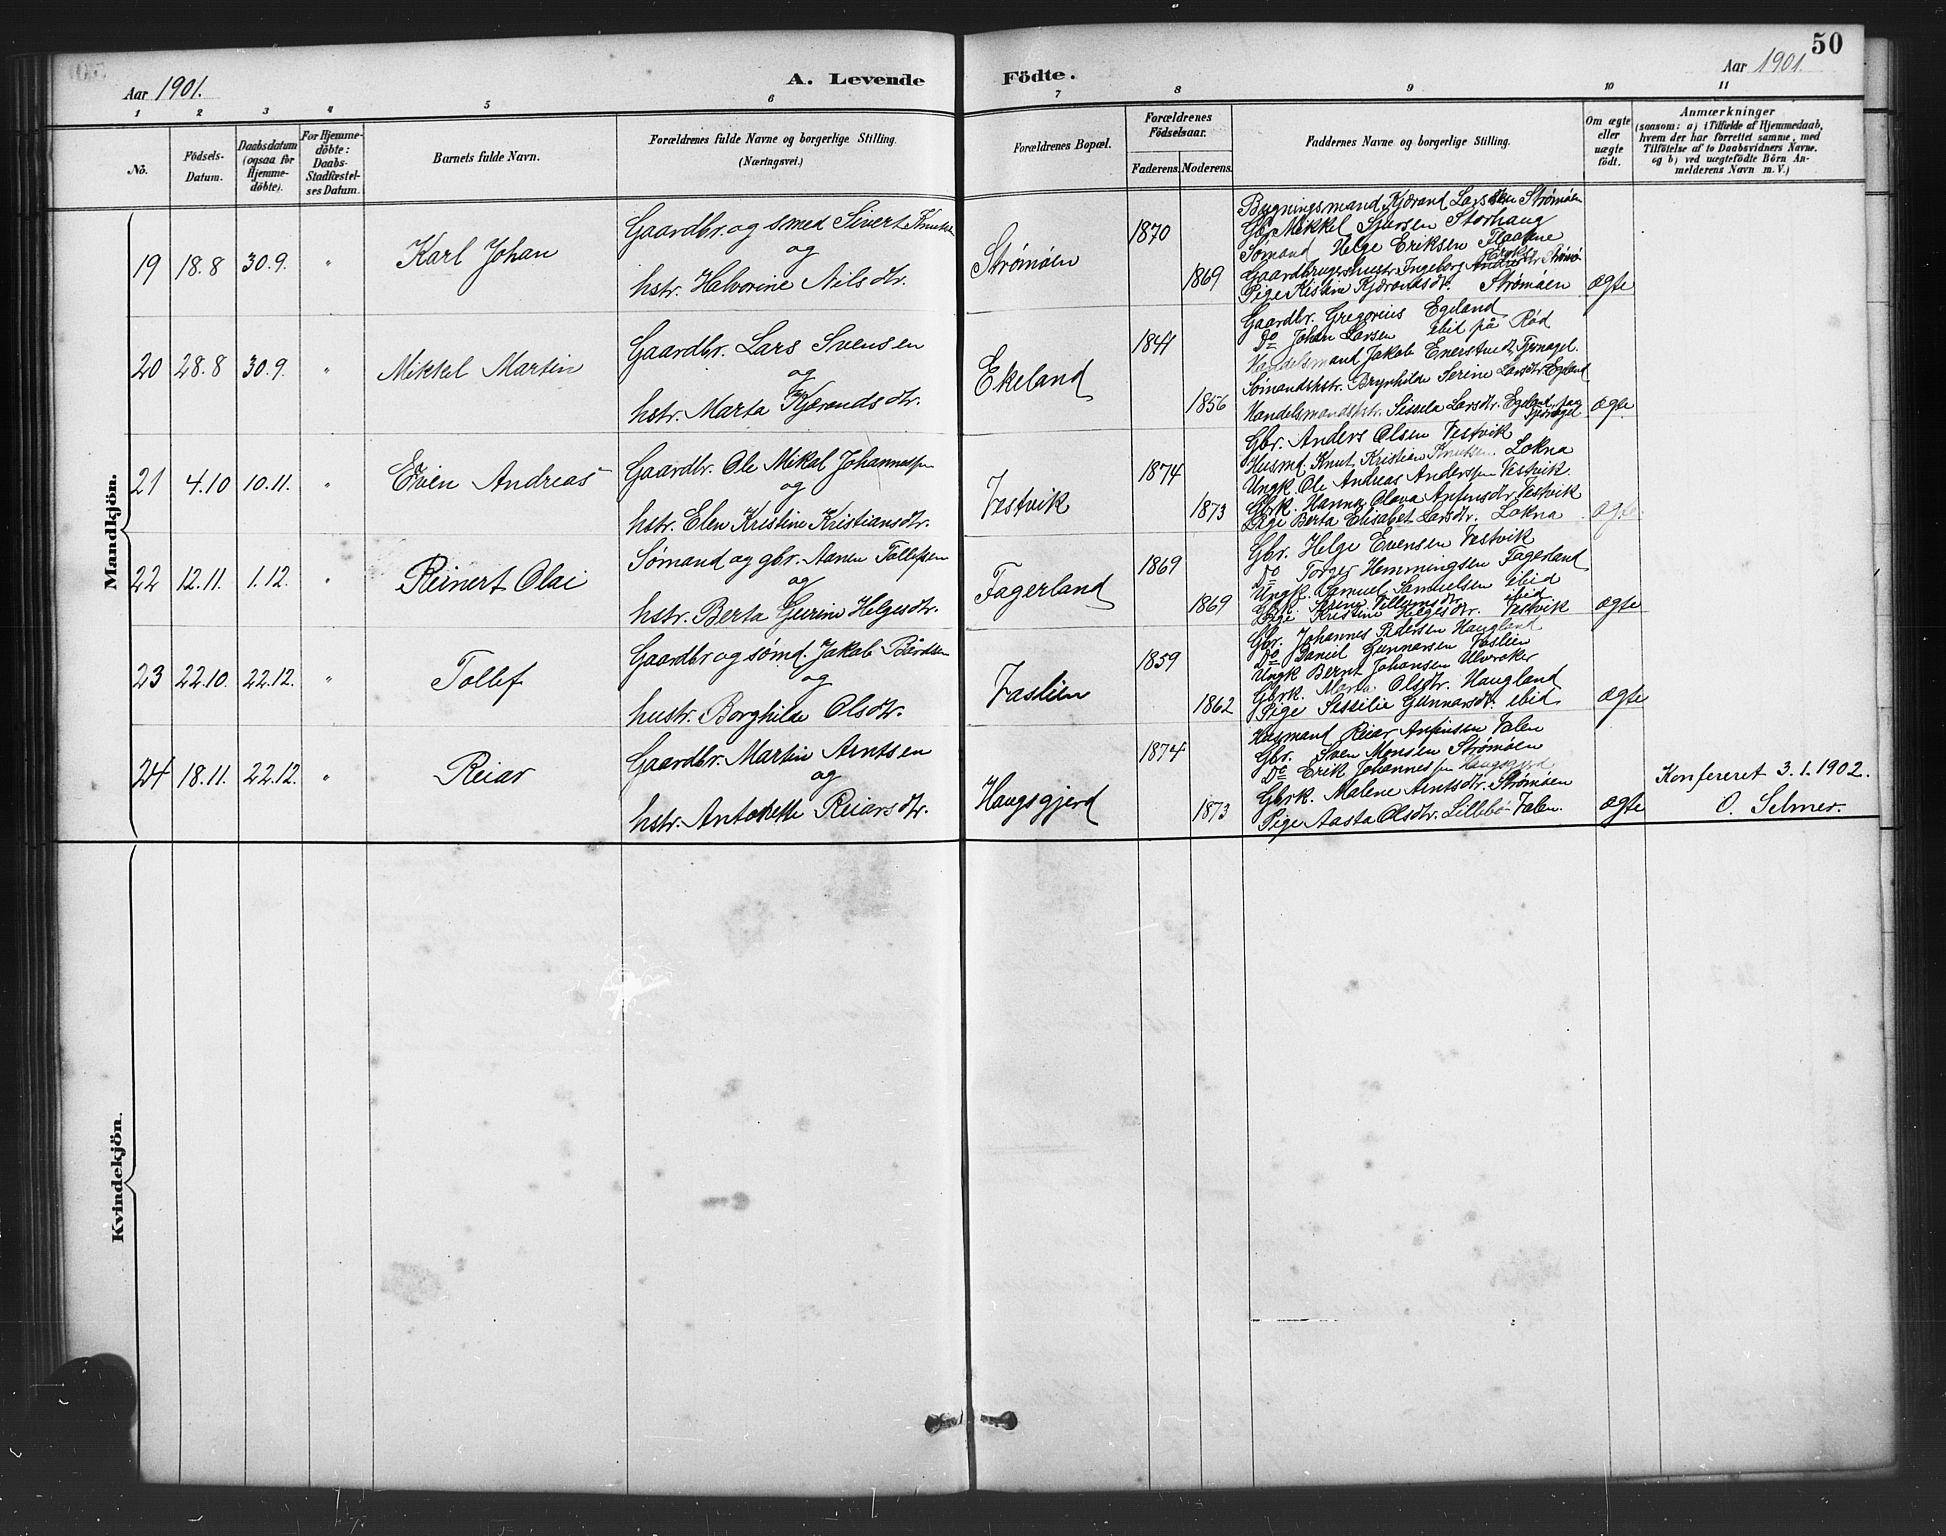 50
Aar 1901.
A. Levende Födte.
Aar 1901.
1 2 3 4 5 6 7 8 9 10 11
No.
Födsels-
Datum.
Daabsdatum
(ogsaa for
Hjemme-
döbte).
For Hjemme-
döbte:
Daabs-
Stadfæstel-
ses Datum.
Barnets fulde Navn.
Forældrenes fulde Navne og borgerlige Stilling
(Næringsvei.)
Forældrenes Bopæl.
Forældrenes
Födselsaar.
Faderens. Moderens.
Faddernes Navne og borgerlige Stilling.
Om ægte
eller
uægte
födt.
Anmærkninger
(saasom: a) i Tilfælde af Hjemmedaab,
hvem der har forrettet samme, med
Tilföielse af to Daabsvidners Navne.
og b) ved uægtefödte Börn An-
melderens Navn m. V.)
Mandkjön.
19 18.8 30.9. " Karl Johan
Gaardbr. og smed Sivert Knutsen
og
hstr. Halvorine Nilsdtr.
Strømøen
1870
1869
Bygningsmand Kjærand Larssen Strømøen
Gbr. Mikkel Sjursen Storhaug
Sømand Helge Eriksen Flaakne
Gaardbrugerhustr. Ingeborg
Pige Kistine Kjærandsdtr. Strømøen
ægte
20 28.8 30.9. " Mikkel Martin
Gaardbr. Lars Svensen
og
hstr. Marta Kjærandsdtr.
Ekeland
1841
1856
Gaardbr. Gregorius Egeland
Do Johan Larsen ibid på Rød
Handelsmand Jakob
Sømandshstr. Brynhilde Serine Larsdtr. Egeland
Handelsmandshstr. Sissela Larsdtr. Egeland
ægte
21 4.10 10.11. " Even Andreas
Gaardbr. Ole Mikal Johannessen
og
hstr. Elen Kristine Kristiansdtr.
Vestvik
1874
1873
Gbr. Anders Olsen Vestvik
Husmd. Knut Kristian Knutsen Lokna
Ungk. Ole Andreas Anderssen Vestvik
Gbrk. Hanna Olava Vestvik
Pige Berta Elisabet Larsdtr. Lokna
ægte
22 12.11. 1.12. " Reinert Olai
Sømand og gbr. Aanen Tollefsen
og
hstr. Berta Gurine Helgesdtr.
Fagerland
1869
1869
Gbr. Helge Evensen Vestvik
Do Torger Hemmingsen Fagerland
Ungk. Samuel Samuelsen ibid
Gbrk. Serine ibid
Pige Kristine Helgesdtr. Vestvik
ægte
23 22.10. 22.12. " Tollef
Gaardbr og sømd. Jakob Bårdsen
og
hustr. Borghilde Olsdtr.
Vaslien
1859
1862
Gbr. Johannes Pedersen Haugland
Do Daniel Gunnarsen Vaslien
Ungk Bernt Johansen Ulveraker
Gbrk. Marta Olsdtr. Haugland
Pige Sessilie Gunnarsdtr. ibid
ægte
24 18.11. 22.12. " Reiar
Gaardbr. Martin Arntsen
og
hstr. Antonette Reiarsdtr.
Haugsgjerd
1874
1873
Husmand Reiar Anfinsen Valen
Gbr. Sven Monsen Strømøen
Do Erik Johannessen Haugsgjerd
Gbrk. Malene Arntsdtr. Strømøen
Pige Aasta Olsdtr. Lillebø Valen.
ægte
Konfereret 3.1.1902.
O. Selmer.
Kvindekjön.